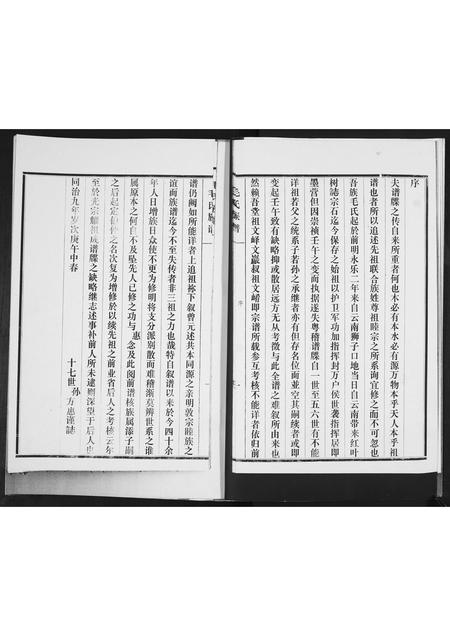 序
夫谱牒之传自来所重者何也木必有本水必有源万物本乎天人本乎祖
谱也者所以追述先祖联合族姓尊祖睦宗之所系询宜修之而不可忽也
吾族毛氏起於前明永乐二年来自云南狮子口地当日自云南带来红叶
树誌宗石迄今保存之始祖以护卫军功加指挥封万户侯世袭指挥居即
墨营但因崇祯壬午之变而执据遂失粤稽谱牒自一世至五六世有不能
详祖若父之统系子若孙之承继者亦有但存名位而并空其嗣续者或即
变起壬午致有缺略抑或散居远方无从考徵与此全谱之难叙所由来也
然赖吾堂祖文峄文巖叔祖文嵋即宗谱所载参互考核不能详者依旧前
谱仍阙如所能详者上追祖祢下叙曾元述其本同源之亲明敦宗睦族之
谊而族谱迄今不至失传者非三祖之力也哉特自叙谱以来於今四十余
年人日增族日众使不更为修明将支分派别散而难稽渐莫辨世系之谁
属原本之何自不及坠先人已修之功与惠念及此阅前谱核族属添子嗣
之后起定位仲之名次复为增修於以续先祖之前业省后人之考核云尔
至於光宗耀祖成谱牒之缺略继志述事补前人所未逮则深望于后人也
同治九年岁次庚午中春
十七世孙方惠谨誌
序